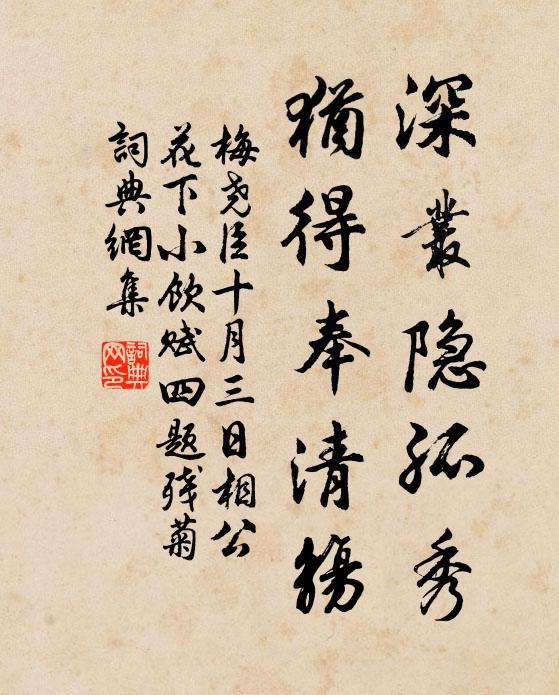 深叢隐孤秀
猶得奉清觴
梅尧臣十月三日相公
花下小飲赋四题残菊
詞典網集
詞典
网印